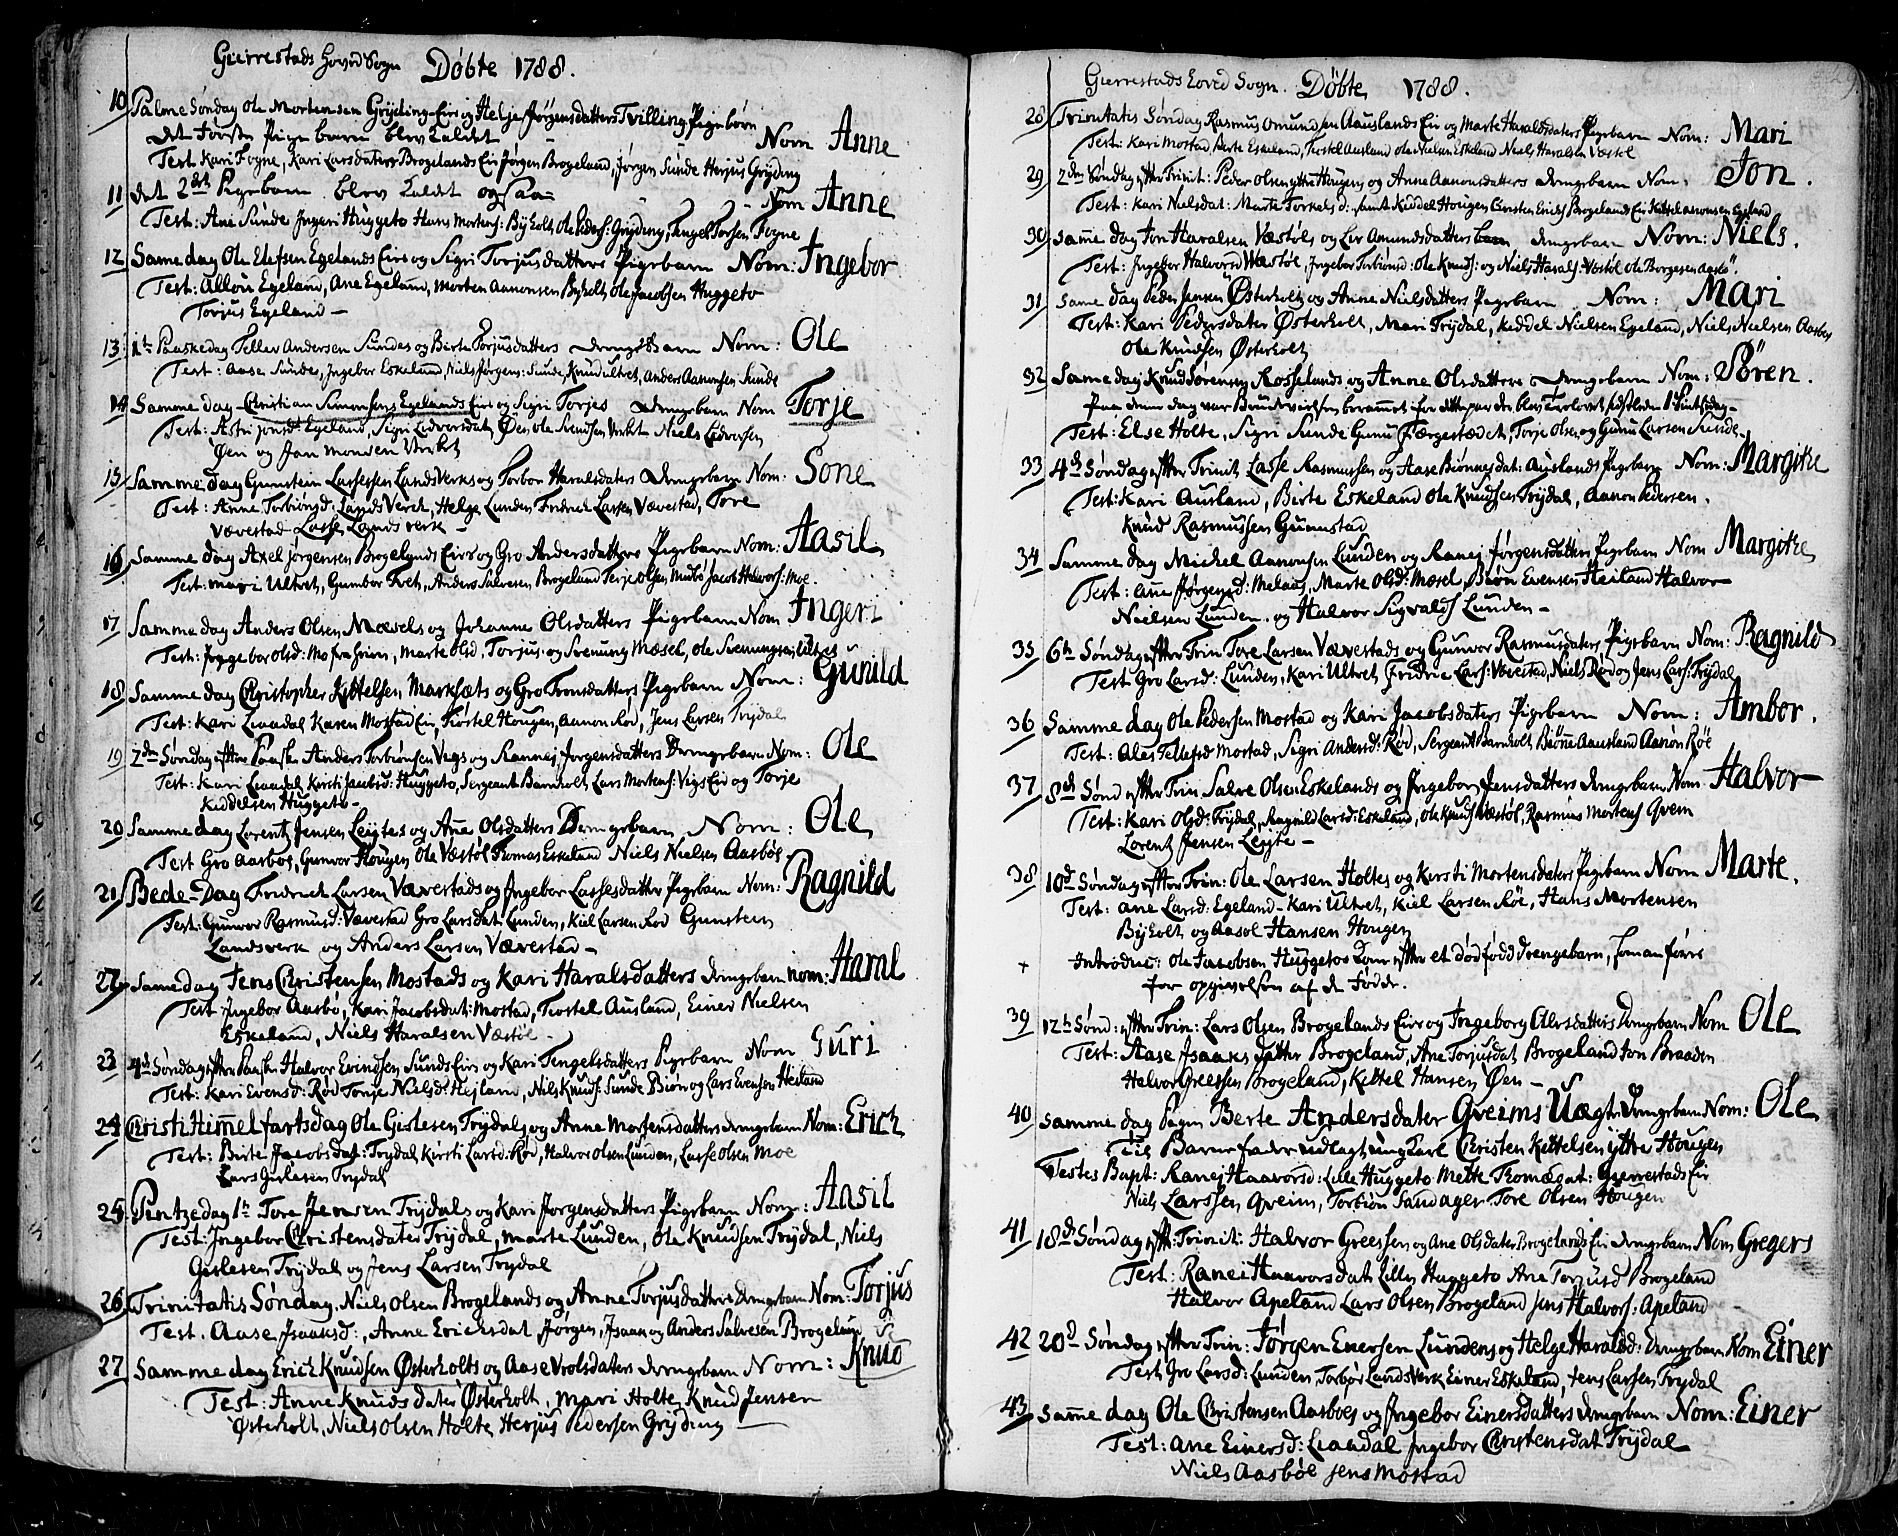 Gierrestads Hoved Sogn Døbte 1788.
10 Palme Søndag Ole Mortensen Grýding Eir og Helje Jørgensdatters Tvilling Pigebørn
det første Pige barn blev kaldet Nom Anne
Test Kari Fogne, Kari Larsdatter Brogelands Eir Jørgen Brogeland, Jørgen Sunde Herjus Grýding
11 det 2det Pigebarn blev kaldt ogsaa Nom Anne
Test: Ane Sunde Ingeri Huggeto Hans Mortens: Býholt, Ole Peders: Grýding, Tengel Torsen Fogne
12 Same dag Ole Olefsen Egelands Eir og Sigri Torjusdatters Pigebarn Nom: Ingebor
Test: Allou Egeland, Ane Egeland, Morten Aanonsen Býholt Ole Jacobsen Huggeto
Torjus Egeland —
13 1te Paaskedag Tellef Andersen Sundes og Birte Torjusdatters Drengebarn Nom: Ole
Test: Aase Sunde, Ingebor Eskeland, Niels Jørgens: Sunde, Knud Ultvet, Anders Aanonsen Sunde
14 Samme dag Christian Simonsens Egelands Eir og Sigri Torjes Drengebarn Nom Torje
Test: Astri Jonsd: Egeland, Sigri Ledvorsdat, Øen, Ole Svendsen Verket Niels Ledvorsen
Øen og Jan Monsen Verket
15 Samme dag Gunstein Lassesen Landsverks og Torbor Haralsdaters Drengebarn Nom: Sone
Test: Anne Torbiønsd: Lands Verck, Helge Lunden Fredrich Larsen Vævestad, Tore
Vævestad Lasse Landsverk —
16 Samme dag Axel Jørgensen Brogelands Eir og Gro Andersdatters Pigebarn Nom: Aasil
Test: Mari Ultvet, Gumbor Tvet, Anders Salvesen Brogeland Terje Olsen Jacob Halvors: Moe.
17 Samme dag Anders Olsen Mæsels og Johanne Olsdatters Pigebarn Nom Ingeri
Test: Inggebor Olsd: Mo fra Heien, Marte Olsd, Torjus og Svenung Mæsel, Ole Svenungsen
18 Samme dag Christopher Kittelsen Marksæts og Gro Tronsdatters Pigebarn Nom: Gunild
Test: Kari Liaadal Karen Mostad Eir, Tiøstel Hougen, Aanon Rød, Jens Larsen Trýdal
19 2den Søndag efter Paaske Anders Torbiønsen Vegs og Rannej Jørgensdatters Drengebarn Nom: Ole
Test: Kari Liaadal, Kirsti Jacobsd: Huggeto, Sergeant Barnholt Lars Mortens: Vigs Eir og Torje
Keddelsen Huggeto —
20 Samme dag Lorentz Jensen Leýtes og Anne Olsdatters Drengebarn Nom: Ole
Test Gro Aasbøe, Gunvor Hougen Ole Væstøl Tomas Eskeland Niels Nielsen Aasbøe.
21 Bede-Dag Fredrich Larsen Vævestads og Ingebor Lassesdatter Pigebarn Nom: Ragnild
Test: Gunvor Rasmusd: Vævestad Gro Larsdat: Lunden, Kiel Larsen Rød Gunsteen
Landsverk og Anders Larsen Vævestad —
22 Same dag Jens Christensen Mostads og Kari Haralsdatters drengebarn nom: Haral
Test Ingebor Aasbø, Kari Jacobsdat: Mostad, Tiostel Ausland, Einer Nielsen
Eskeland, Niels Haralsen Væstøl —
23 4de Søndag efter Paaske Halvor Evindsen Sunds Eir og Kari Tengelsdatters Pigebarn Nom Guri
Test: Kari Evensd: Rød Torje Nielsd: Hejland, Nils Knuds: Sunde Biørn og Lars Evensen Heiland
24 Christi Himmelfartsdag Ole Gislesen Trýdals og Anne Mortensdatters drengebarn Nom: Erich
Test: Birte Jacobsdat: Trýdal Kirsti Larsd: Rød, Halvor Olsen Lunden, Lasse Olsen Moe
Lars Gislesen Trýdal
25 Pintzedag 1te Tore Jensen Trýdals og Kari Jørgensdatters Pigebarn Nom: Aasil
Test: Ingebor Christensdater Trýdal, Marte Lunden, Ole Knudsen Trýdal, Niels
Gislesen Trýdal og Jens Larsen Trýdal
26 Trinitatis Søndag, Niels Olsen Brogelands og Anne Torjusdatters Drengebarn Nom: Torjus
Test. Aase Isaaksd:, Anne Erichsdat Jørgen, Isaan og Anders Salvesen Brogeland
27 Samme dag Erich Knudsen Østerholts og Aase Vrolsdaters drengebarn Nom: Knud
Test: Anne Knudsdater Østerholt, Mari Holte Knud Jensen
Østerholt, Niels Olsen Holte Herjus Pedersen Grýding —
Gierrestads Hoved Sogn. Døbte 1788.
28 Trinitatis Søndag Rasmus Omundsen Aauslands Eir og Marte Haraldsdaters Pigebarn Nom: Mari
Test: Kari Mostad Berte Eskeland, Tiostel Ausland Ole Nielsen Eskeland Niels Haralsen Væstøl
29 2den Søndag efter Trinit: Peder Olsen ytre Hougens og Anne Aanonsdatters Drengebarn Nom: Jon.
Test: Kari Nielsdat: Marte Torkelsd: samt Keddel Hougen Christen Erichs Brogelands Eir Kittel Aanonsen Egeland
30 Same dag Jon Haralsen Væstøls og Liv Amundsdatters barn drengebarn Nom: Niels.
Test: Ingebor Halvorsd Wæstøl, Ingebor Torbiønsd: Ole Knuds: og Niels Harals: Væstøl Ole Borgesen Aasbø.
31 Same dag Peder Jensen Østerholts og Anne Nielsdatters Pigebarn Nom: Mari
Test: Kari Pedersdater Østerholt, Mari Trýdal, Keddel Nielsen Egeland, Niels Nielsen Aasbøe
Ole Knudsen Østerholt
32 Same dag Knud Sørensen Rosselands og Anne Olsdatters Drengebarn Nom: Søren.
Paa denne dag var Brudevielsen berammet for dette par de blev Trolovet sidstleden 1te Pintzdag —
Test: Else Holte, Sigri Sunde Gunu Færgestædet, Torje Olsen og Gunu Larsen Sunde.
33 4de Søndag efter Trinit Lasse Rasmussen og Aase Biønnesdat: Auslands Pigebarn Nom: Margite
Test: Kari Ausland, Birte Eskeland Ole Knudsen Trýdal, Aanon Pedersen.
Knud Rasmussen Gumstad
34 Samme dag Michel Aanonsen Lunden og Ranej Jørgensdatters Pigebarn Nom Margite
Test: Ane Jørgensd: Melaas, Marte Olsd: Mæsel, Biøn Evensen Heiland Halvor
Nielsen Lunden. og Halvor Sigvalds Lunden —
35 6te Søndag efter Trin Tore Larsen Vævestads og Gunvor Rasmusdaters Pigebarn Nom: Ragnild
Test Gro Larsd: Lunden, Kari Ultvet Fridric Lars: Vævestad, Niels Rød og Jens Lars: Trýdal
36 Samme dag Ole Pedersen Mostad og Kari Jacobsdaters Pigebarn Nom: Ambor.
Test: Ales Tellefsd Mostad, Sigri Andersd: Rød, Sergeant Barnholt Biønne Aausland Aanon Røe
37 8de Sønd efter Trin Salve Olsen Eskelands og Ingebor Jensdatters drengebarn Nom: Halvor
Test: Kari Olsd: Trýdal, Ragnild Larsd: Eskeland, Ole Knuds Væstøl, Rasmus Mortens Qvem
Lorentz Jensen Leýte —
38 10de Søndag efter Trin: Ole Larsen Holtes og Kirsti Mortensdaters Pigebarn Nom Marte.
Test: Ane Larsd: Egeland — Kari Ultvet, Kiel Larsen Røe, Hans Mortensen
Býholt og Aasol Hansen Hougen
+ Introduc: Ole Jacobsen Huggetos Kone efter et dødfødd Drengebarn, som anføres
for opgivelsen af de Fødde.
39 12te Sønd: efter Trin: Lars Olsen Brogelands Eir og Ingeborg Olersdatters Drengebarn Nom Ole
Test: Aase Isaaksdatter Brogeland, Ane Torjusdat Brogeland Jon Braaden
Halvor Greessen Brogeland, Kittel Hansen Øen —
40 Samme dag Pigen Berte Andersdater Qveims Uægte Drengebarn Nom: Ole
Til Barnefader udlagt ung Karl Christen Kettelsen ýtre Hougen
Testes Bapt: Ranej Haavorsd: Lille Huggeto Mette Thomædat: Gierrestads Eir
Niels Larssen Qveim, Torbiøn Sandager Tore Olsen Hougen
41 18de Søndag eft: Trinit: Halvor Greessen og Ane Olsdater Brogelands Eir drengebarn Nom Gregers
Test: Ranei Haavorsdat Lille Huggeto Ane Torjusd Brogeland
Halvor Apeland Lars Olsen Brogeland Jens Halvors: Apeland
42 20de Søndag efter Trin: Jørgen Enersen Lundens og Helge Haraldsd: Drengebarn Nom Einer
Test Gro Larsd: Lunden, Torbor Landsverk Einer Eskeland, Jens Larsen Trýdal
43 Same dag Ole Christensen Aasboes og Ingebor Einersdatters drengebarn Nom: Einer
Test: Ane Einersd: Liaadal Ingebor Christensdat Trýdal
Niels Aasbøe Jens Mostad